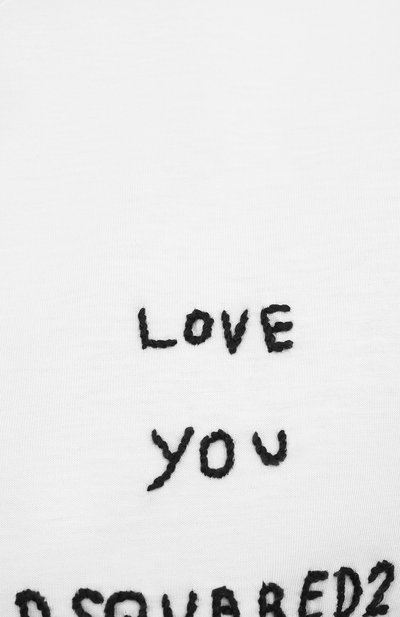 LOVE
YOU
DSQUARED2